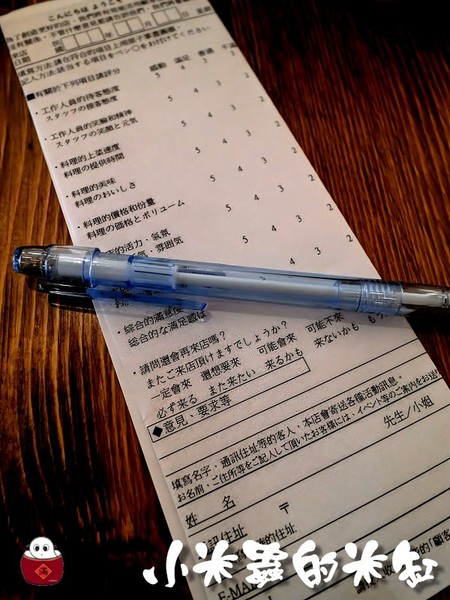 こんにちは ようこそ
日期
填寫方法:請在符合的項目上用原子筆畫圈圈
記入方法:該当する項目をペン○をお付けてください
■有關於下列項目請評分 感動 滿足 普通
・工作人員的待客態度 5 4 3 2
スタッフの接客態度
・工作人員的笑臉和精神 5 4 3 2
スタッフの笑顔と元気
・料理的上菜速度 5 4 3 2
料理の提供時間
・料理的美味 5 4 3 2
料理のおいしさ
・料理的價格和份量 5 4 3 2
料理の価格とボリューム
的活力、氣氛 5 4 3 2
・雰囲気
4 3 2
・綜合的滿意度
総合的な満足度は
・請問還會再來店嗎?
またご来店頂けますでしょうか?
一定會來 還想要來 可能會來 可能不來
必ず来る また来たい 来るかも 来ないかも
◆意見、要求等
填寫名字、通訊住址等的客人,本店會寄送各種活動訊息。
お名前・ご住所等をご記入して頂いたお客様には、イベント等のご案内をお送
姓 名 先生/小姐
〒
訊住址
の住所
E-MA
小米蟲的米缸